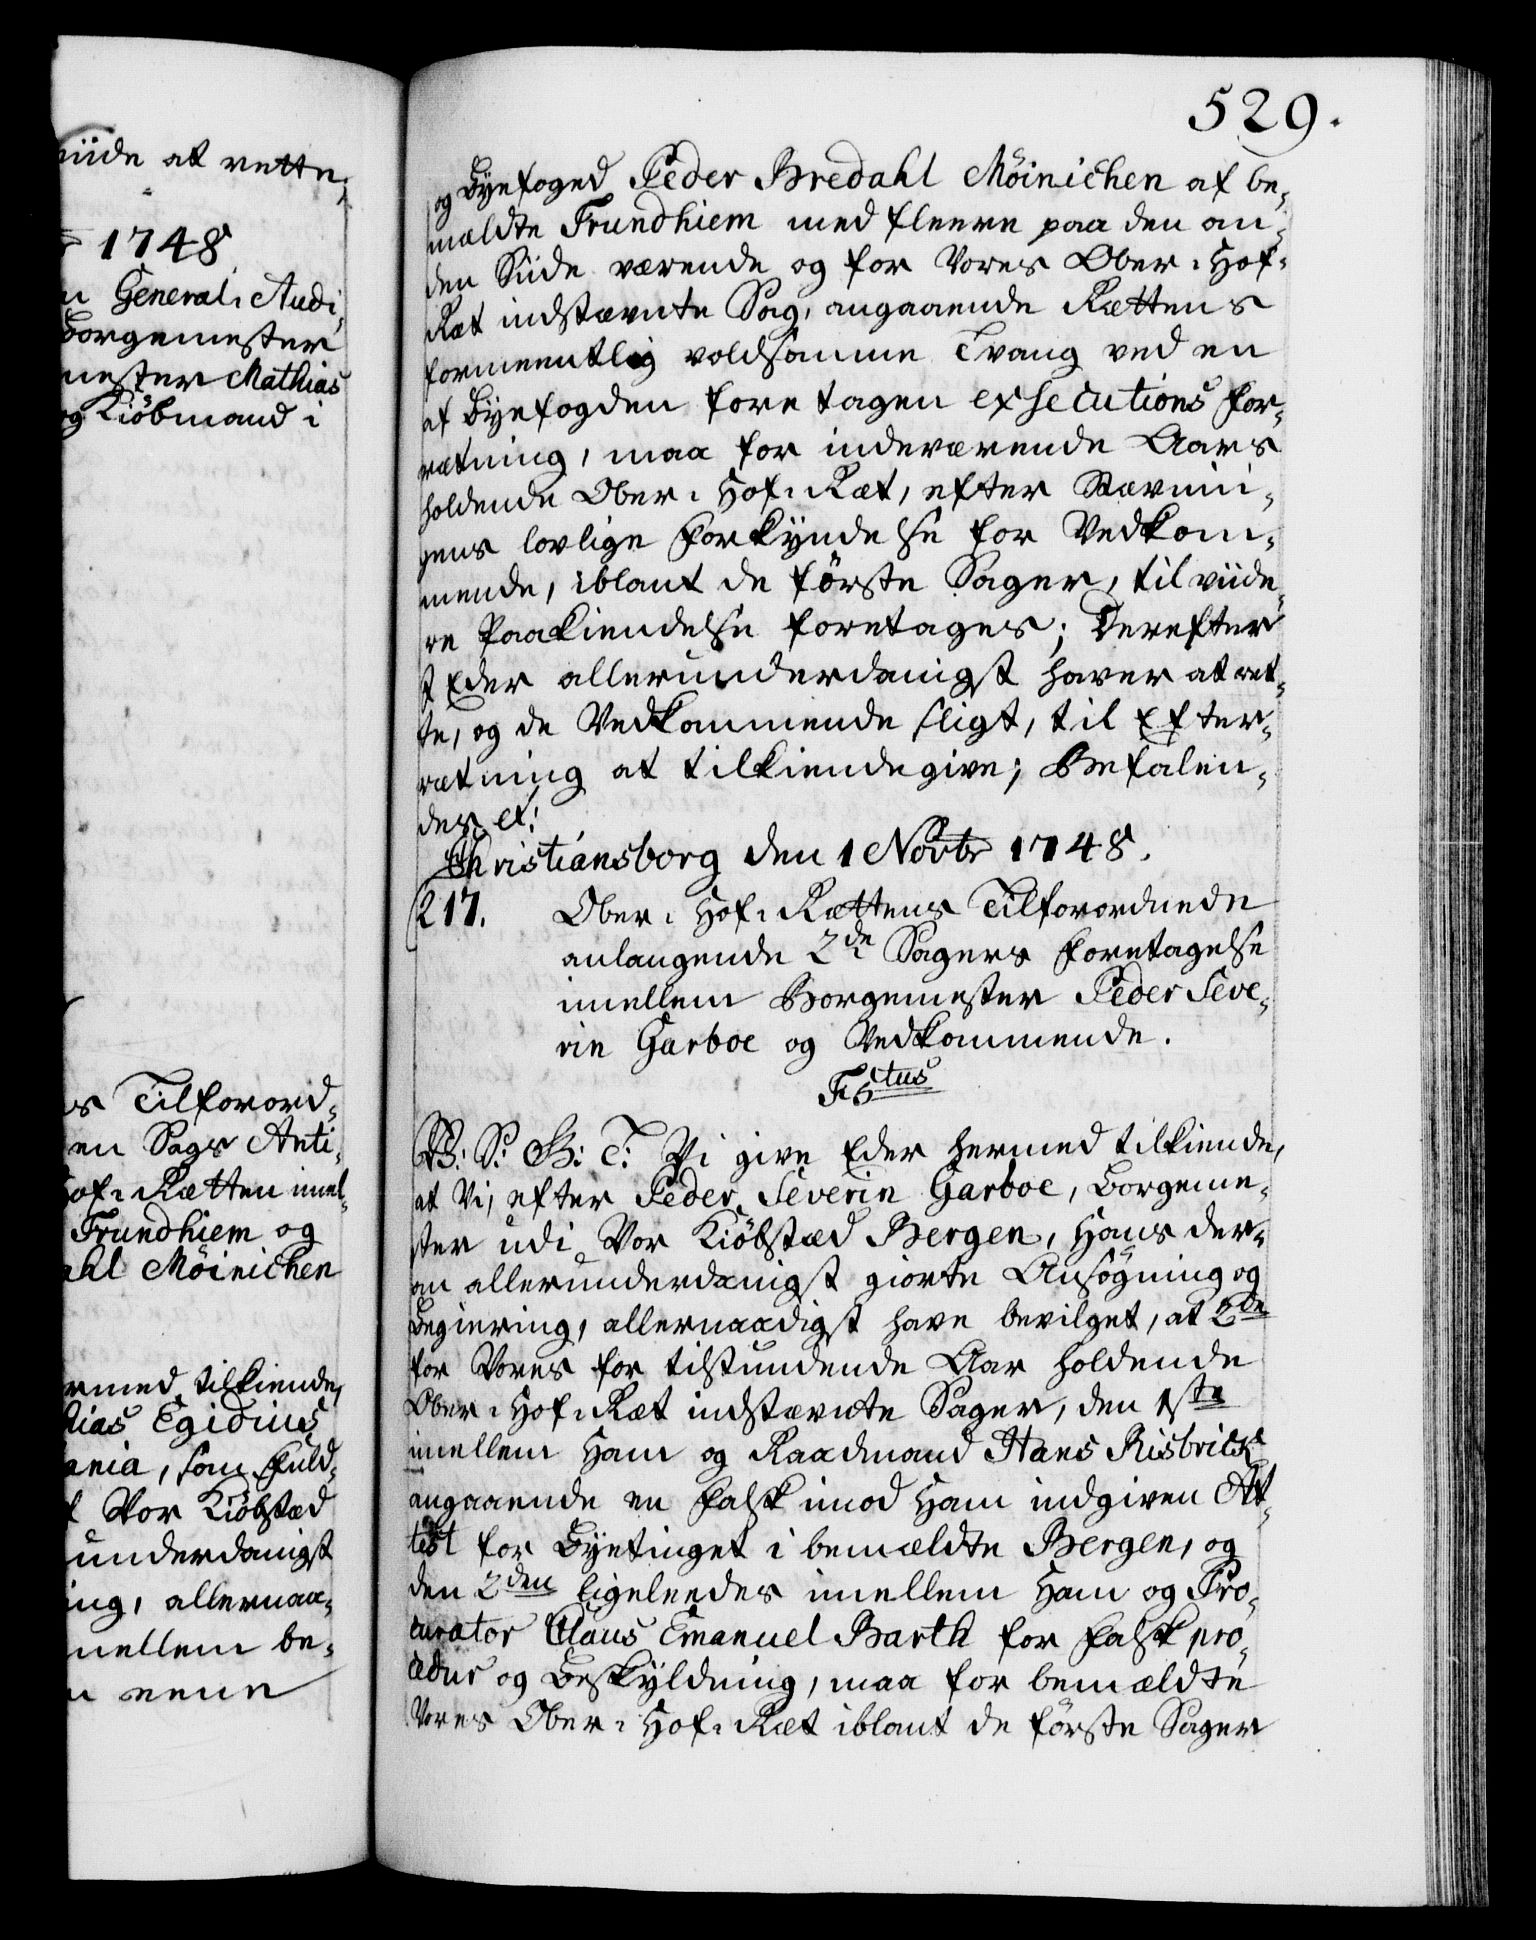 viide at rette,
1748
General-Audi,
Borgemester
mester Mathias
og Kiöbmand i
s Tilforord,
en Sags Anti,
Hof-Rætten imel,
Trundhiem og
ahl Möinichen
ermed tilkiende,
tias Egidius
ania, som Fuld,
Vor Kiöbstæd
underdanigst
ing, allernaa,
mellem be,
n eene
529.
og Byefoged Peder Bredahl Möinichen af be,
mældte Trundhiem med fleere paa den an,
den Siide værende og for Vores Ober-Hof-
Ræt indstævnte Sag, angaaende Rettens
formeentlig voldsomme Tvang ved en
af Byefogden foretagen executions For,
rætning, maa for indeværende Aars
holdende Ober-Hof-Ræt, efter Stævnin,
gens lovlige Forkyndelse for Vedkom,
mende, iblant de förste Sager, til viide,
re Paakiendelse foretages; Derefter
I Eder allerunderdanigst haver at ret,
te, og de Vedkommende sligt, til Efter,
rætning at tilkiendegive; Befalen,
des et:
Christiansborg den 1 Novbr 1748.
217. Ober-Hof-Rættens Tilforordnede
anlangende 2de Sagers Foretagelse
imellem Borgemester Peder Seve,
rin Garboe og Vedkommende.
F 5tus
V: S: G: T: Vi give Eder hermed tilkiende,
at Vi, efter Peder Severin Garboe, Borgeme,
ster udi Vor Kiöbstæd Bergen, Hans der,
om allerunderdanigst giorte Ansögning og
Begiering, allernaadigst have bevilget, at 2de
for Vores for tilstundende Aar holdende
Ober-Hof-Ræt indstævnte Sager, den 1ste
imellem Ham og Raadmand Hans Risbrick
angaaende en falsk imod Ham indgiven At,
test for Byetinget i bemældte Bergen, og
den 2den ligeleedes imellem Ham og Pro,
curator Claus Emanuel Barth for falsk pro,
cedur og Beskyldning, maa for bemældte
Vores Ober-Hof-Ræt iblant de förste Sager